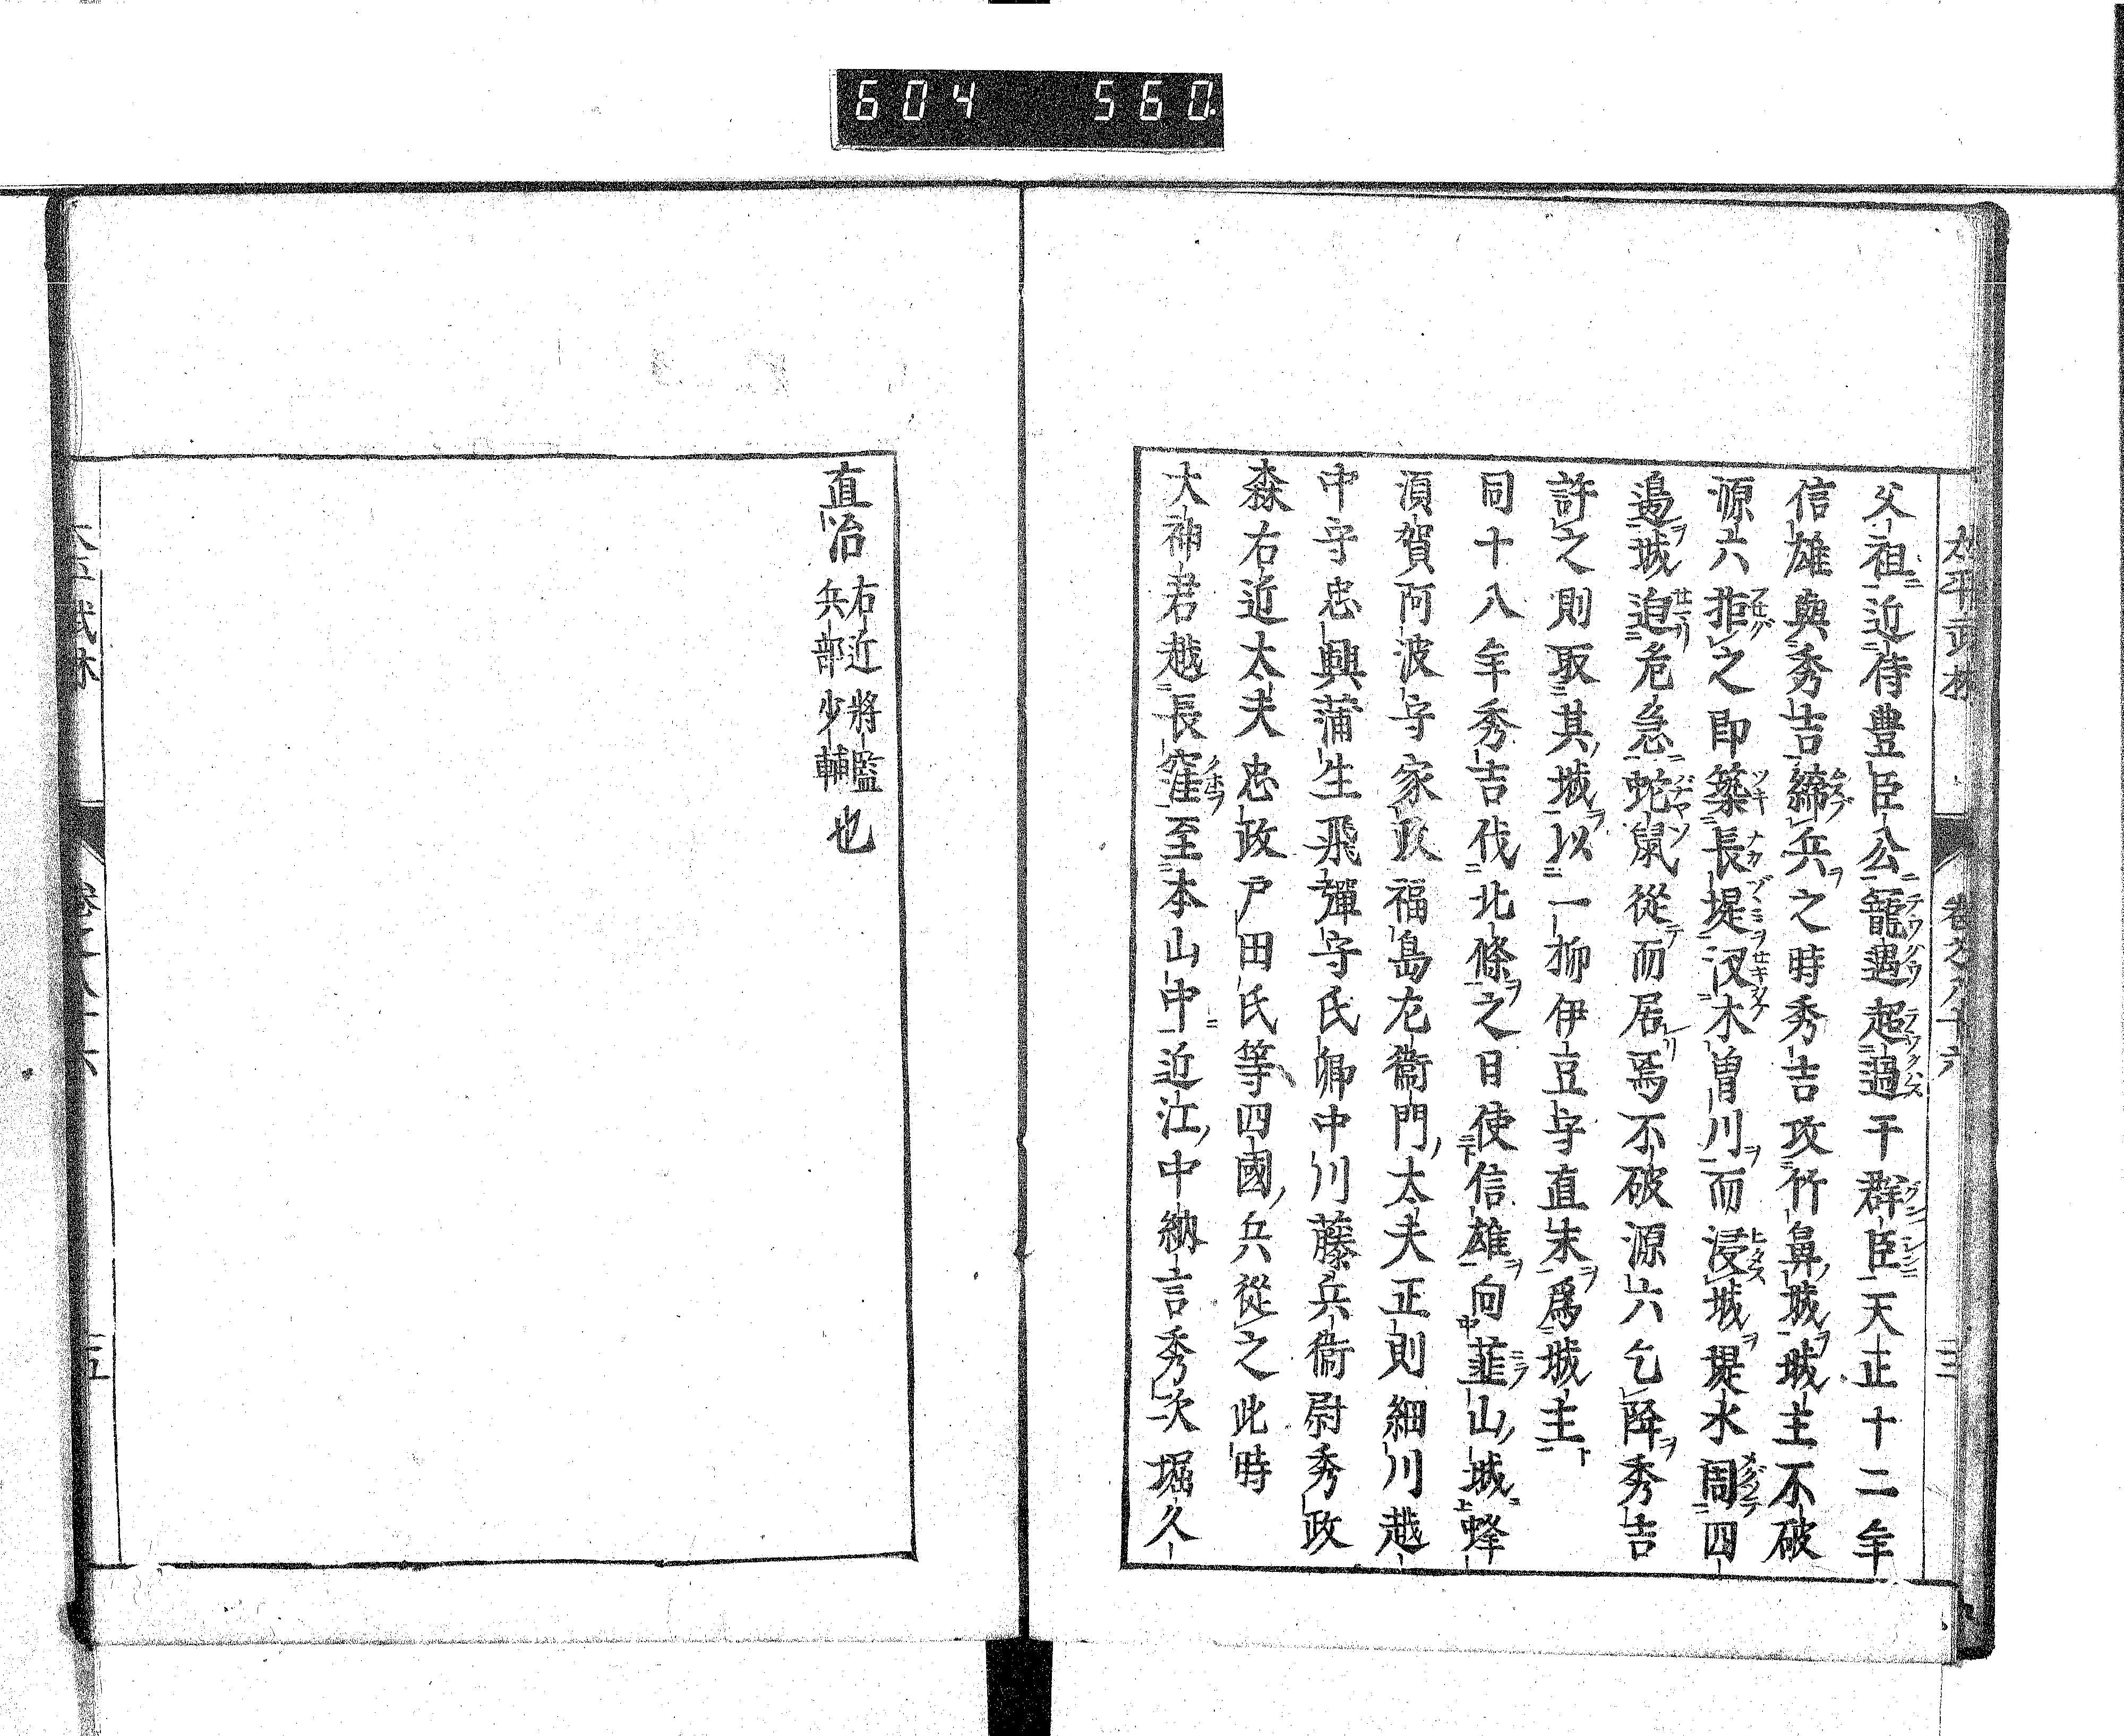 604 560
太平武林 卷之八十六 三
父祖近侍豊臣公寵遇超過于群臣天正十二年
信雄與秀吉締兵之時秀吉攻竹鼻城城主不破
源六拒之即築長堤汲木曽川而浸城堤水周四
邉城迫危急蛇鼠從而居焉不破源六乞降秀吉
許之則取其城以一栁伊豆守直末爲城主
同十八年秀吉伐北條之日使信雄向韮山城蜂
須賀阿波守家政福島左衞門太夫正則細川越
中守忠興蒲生飛彈守氏郷中川藤兵衞尉秀政
森右近太夫忠政戸田氏等四國兵從之此時
大神君越長窪至本山中近江中納言秀次堀久
直治右近將監兵部少輔也
五